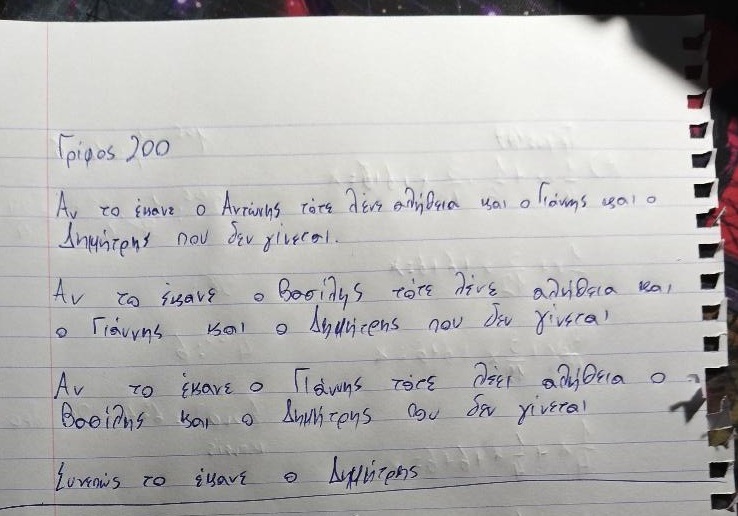 Γρίφος 200
Αν το έκανε ο Αντώνης τότε λένε αλήθεια και ο Γιάννης και ο
Δημήτρης που δεν γίνεται.
Αν το έκανε ο Βασίλης τότε λένε αλήθεια και
ο Γιάννης και ο Δημήτρης που δεν γίνεται
Αν το έκανε ο Γιάννης τότε λέει αλήθεια ο
Βασίλης και ο Δημήτρης που δεν γίνεται
Συνεπώς το έκανε ο Δημήτρης